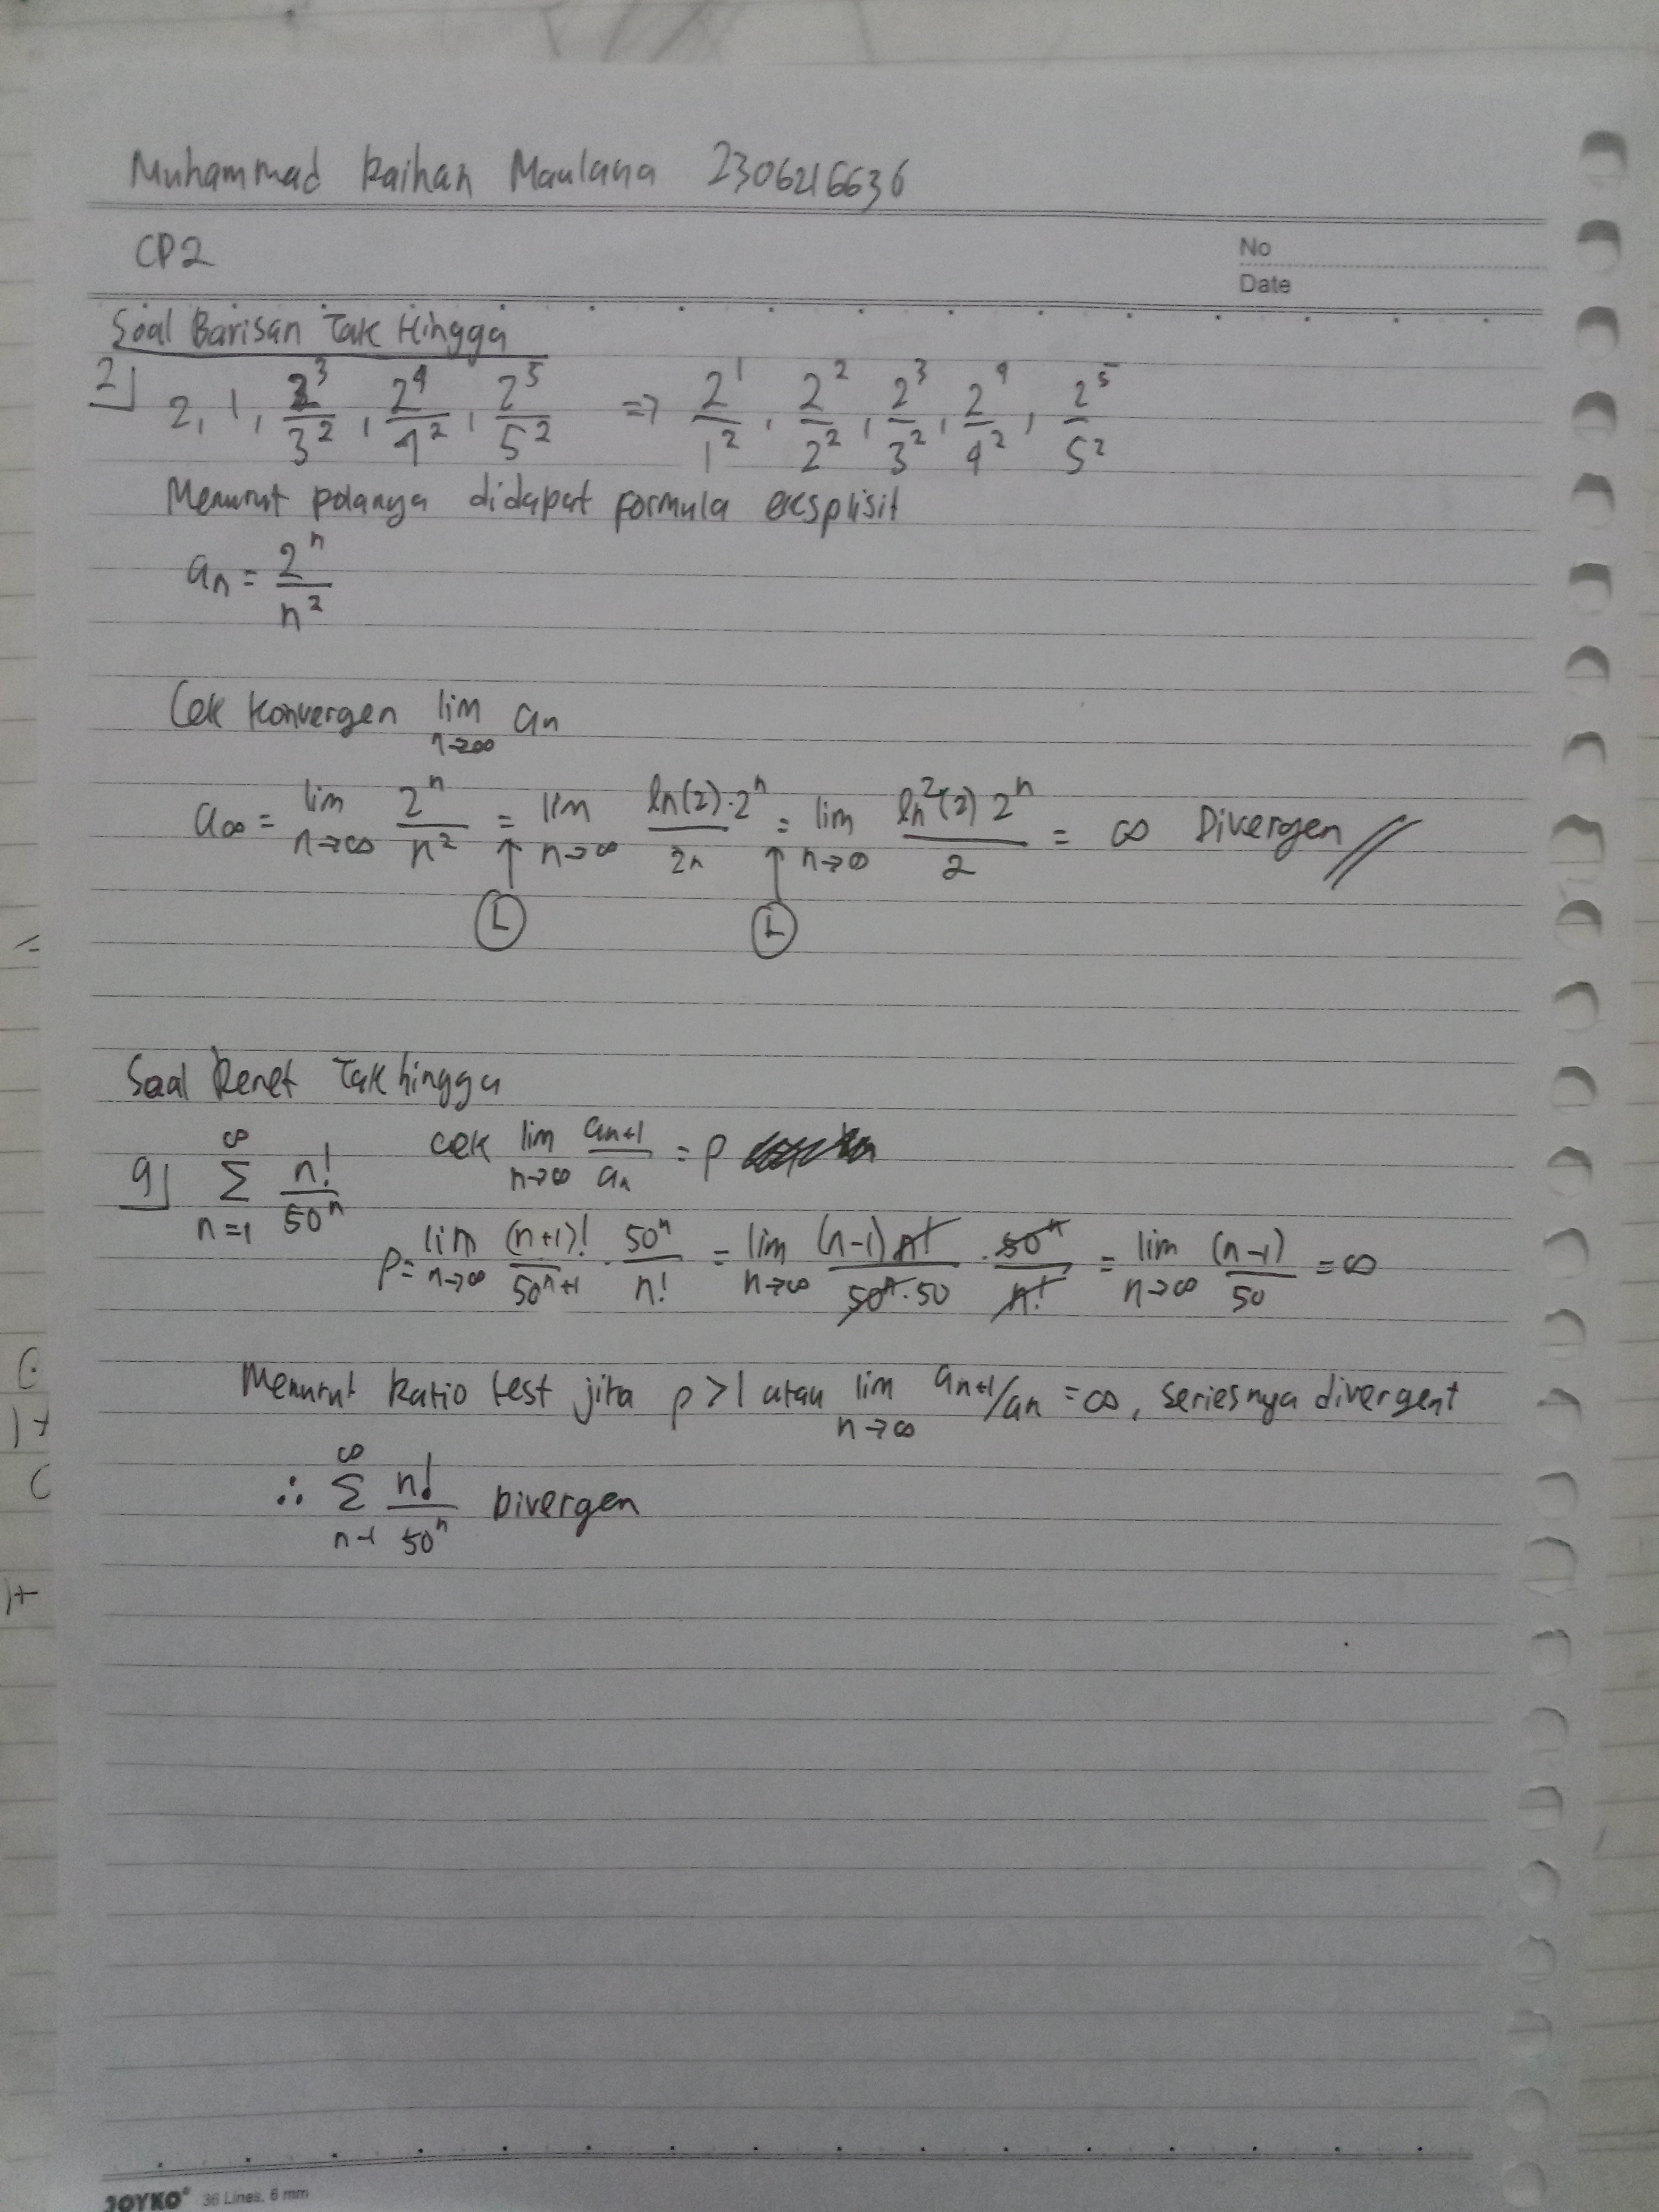 Muhammad Raihan Maulana 2306216636
CP2
No
Date
Soal Barisan Tak Hingga
2] 2, 1, 2^3/3^2, 2^4/4^2, 2^5/5^2 => 2^1/1^2, 2^2/2^2, 2^3/3^2, 2^4/4^2, 2^5/5^2
Menurut polanya didapat formula eksplisit
an = 2^n/n^2
Cek konvergen lim n→∞ an
a∞ = lim n→∞ 2^n/n^2 = lim n→∞ ln(2)·2^n/2n = lim n→∞ ln^2(2) 2^n/2 = ∞ Divergen //
L L
Soal Deret Tak hingga
9] ∞ Σ n=1 n!/50^n cek lim n→∞ an+1/an = ρ
ρ = lim n→∞ (n+1)!/50^n+1 · 50^n/n! = lim n→∞ (n-1) n!/50^n·50 · 50^n/n! = lim n→∞ (n-1)/50 = ∞
Menurut Ratio test jika ρ > 1 atau lim n→∞ an+1/an = ∞, seriesnya divergent
∴ ∞ Σ n-1 n!/50^n Divergen
JOYKO® 36 Lines, 6 mm